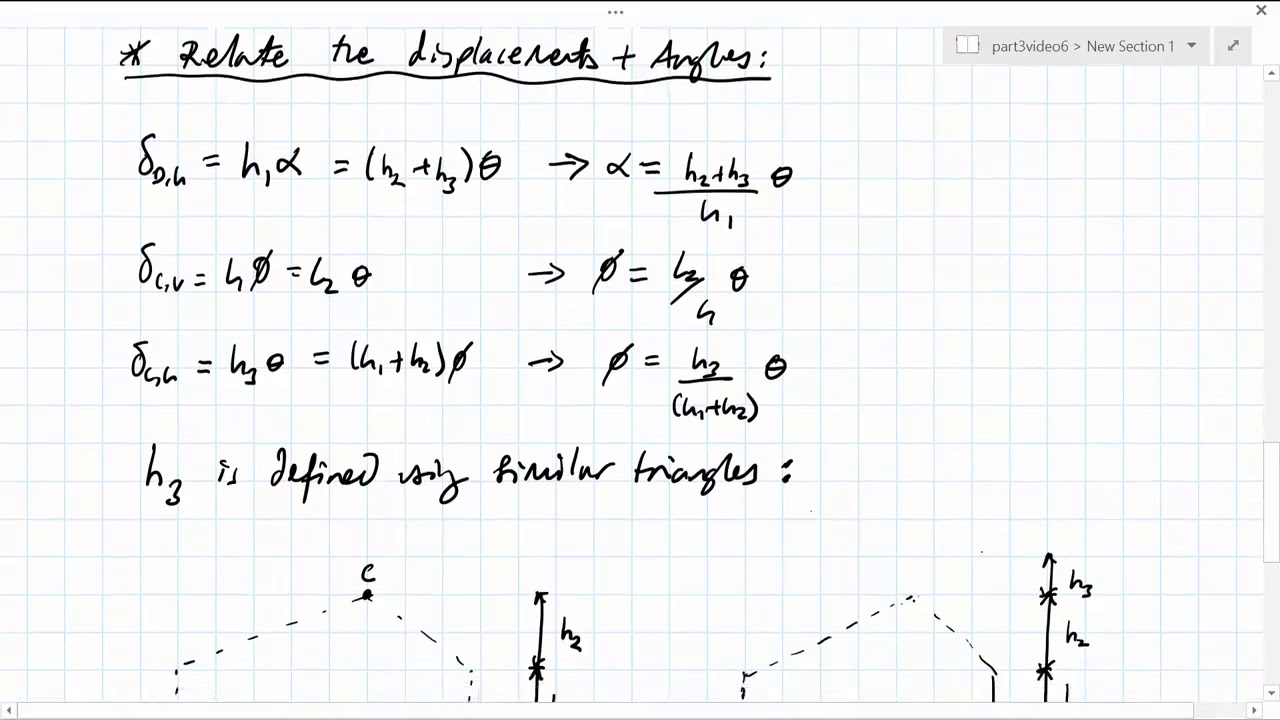 part3video6 > New Section 1
* Relate the displacements + Angles:
δD,h = h1α = (h2+h3)θ → α = (h2+h3)/h1 θ
δC,v = lφ = l2 θ → φ = l2/l θ
δC,h = h3θ = (h1+h2)φ → φ = h3/(h1+h2) θ
h3 is defined using similar triangles :
C
h3
h2
h2